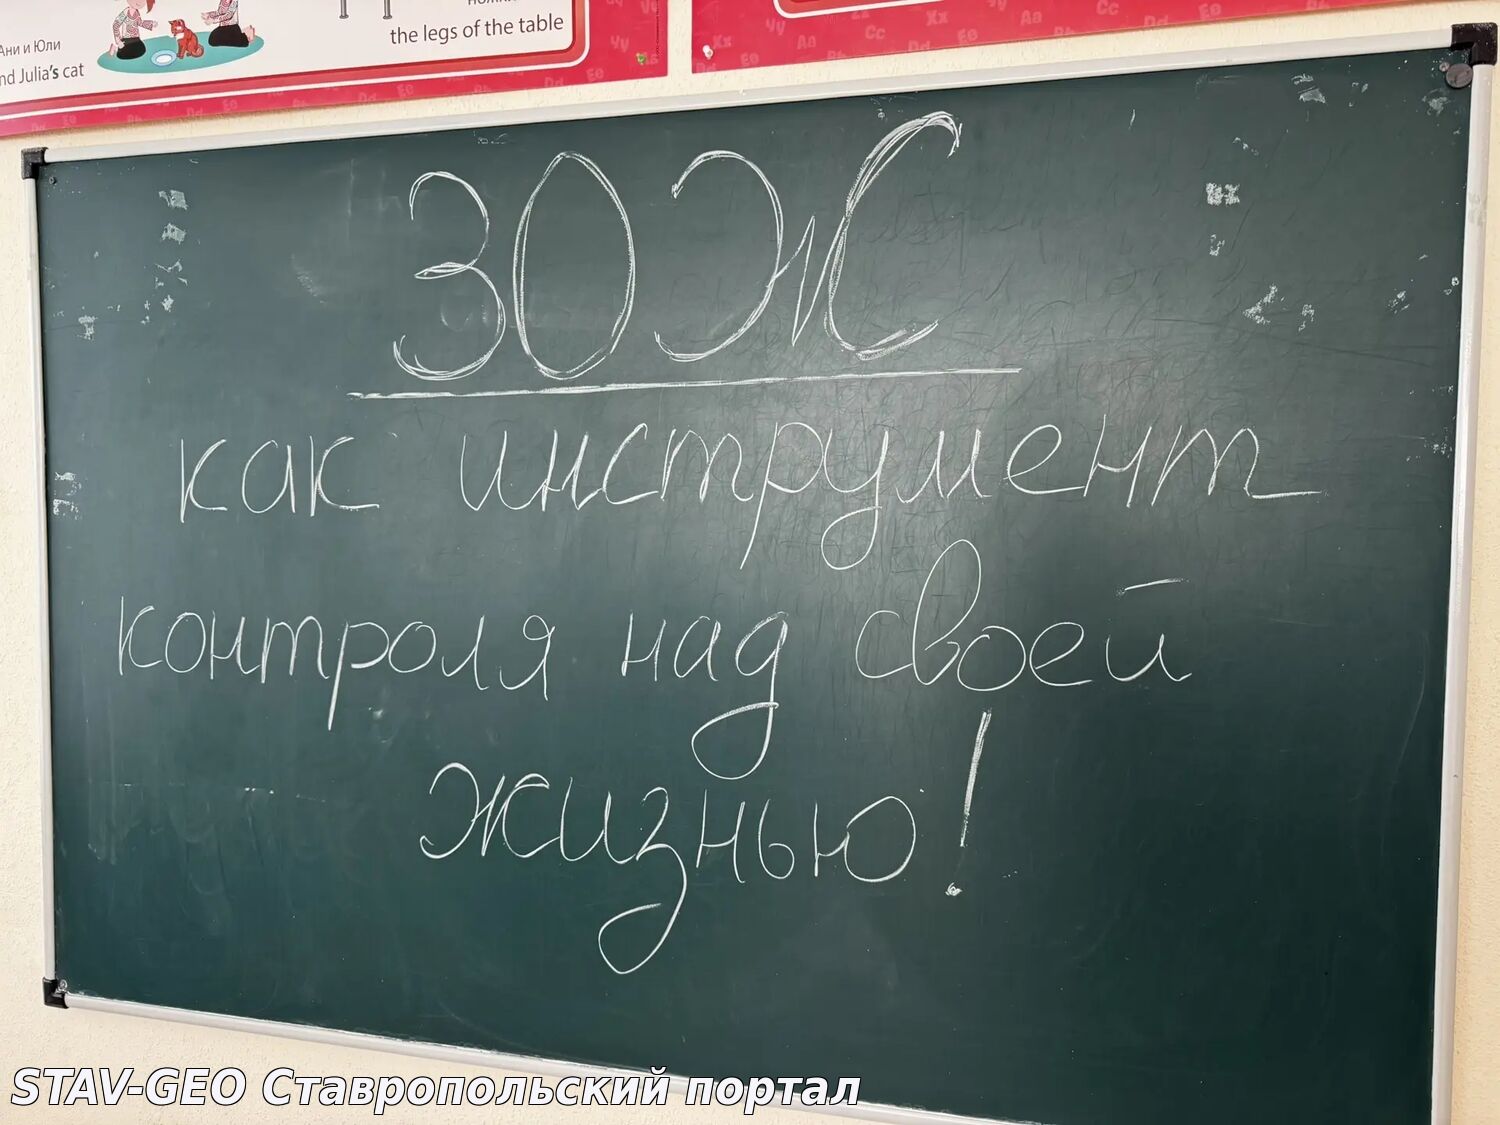 Ани и Юли
nd Julia's cat
the legs of the table
ЗОЖ
как инструмент
контроля над своей
жизнью!
STAV-GEO Ставропольский портал